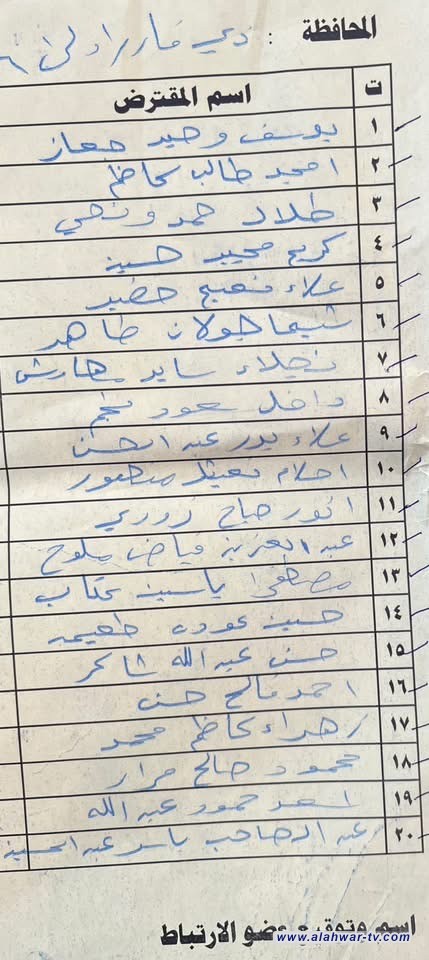 المحافظة : ذي قار
ت اسم المقترض
١ يوسف وحيد جعاز
٢ امجد طالب كاظم
٣ طلال حمد ونهي
٤ كريم مجيد حسين
٥ علاء نعيم خضير
٦ شيما جولان طاهر
٧ نجلاء ساير
٨ داخل سعود نجم
٩ علاء بدر عبد الحسن
١٠ احلام
١١ انور صباح زوري
١٢ عبد العزيز فياض
١٣ مصطفى ياسين
١٤ حسين عودة طعيمه
١٥ حسن عبد الله شاكر
١٦ احمد فالح حسن
١٧ زهراء كاظم محمد
١٨ محمود صالح مرار
١٩ اسعد حمود عبد الله
٢٠ عبد الصاحب ياسر عبد الحسين
اسم وتوقيع عضو الارتباط
www.alahwar-tv.com